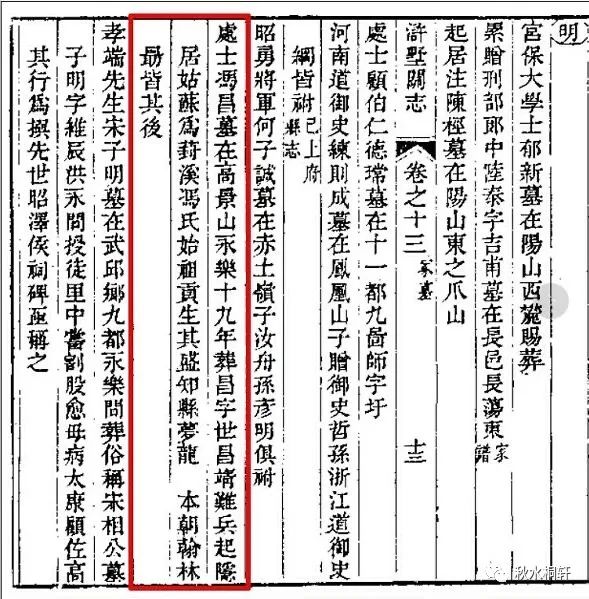 明
宮保大學士郁新墓在陽山西麓賜葬
累贈刑部郎中陸泰字吉甫墓在長邑長蕩東家譜
起居注陳樫墓在陽山東之爪山
滸墅關志 卷之十三 冢墓 十三
處士顧伯仁德瑺墓在十一都九啚師字圩
河南道御史練則成墓在鳳凰山子贈御史哲孫浙江道御史
綱皆祔已上府縣志
昭勇將軍何子誠墓在赤土嶺子汝舟孫彥明俱祔
處士馮昌墓在高景山永樂十九年葬昌字世昌靖難兵起隱
居姑蘇爲葑溪馮氏始祖貢生其盛知縣夢龍 本朝翰林
勖皆其後
孝端先生宋子明墓在武邱鄉九都永樂間葬俗稱宋相公墓
子明字維辰洪永間授徒里中嘗割股愈母病太康顧佐高
其行爲撰先世昭澤侯祠碑亟稱之
秋水洞轩